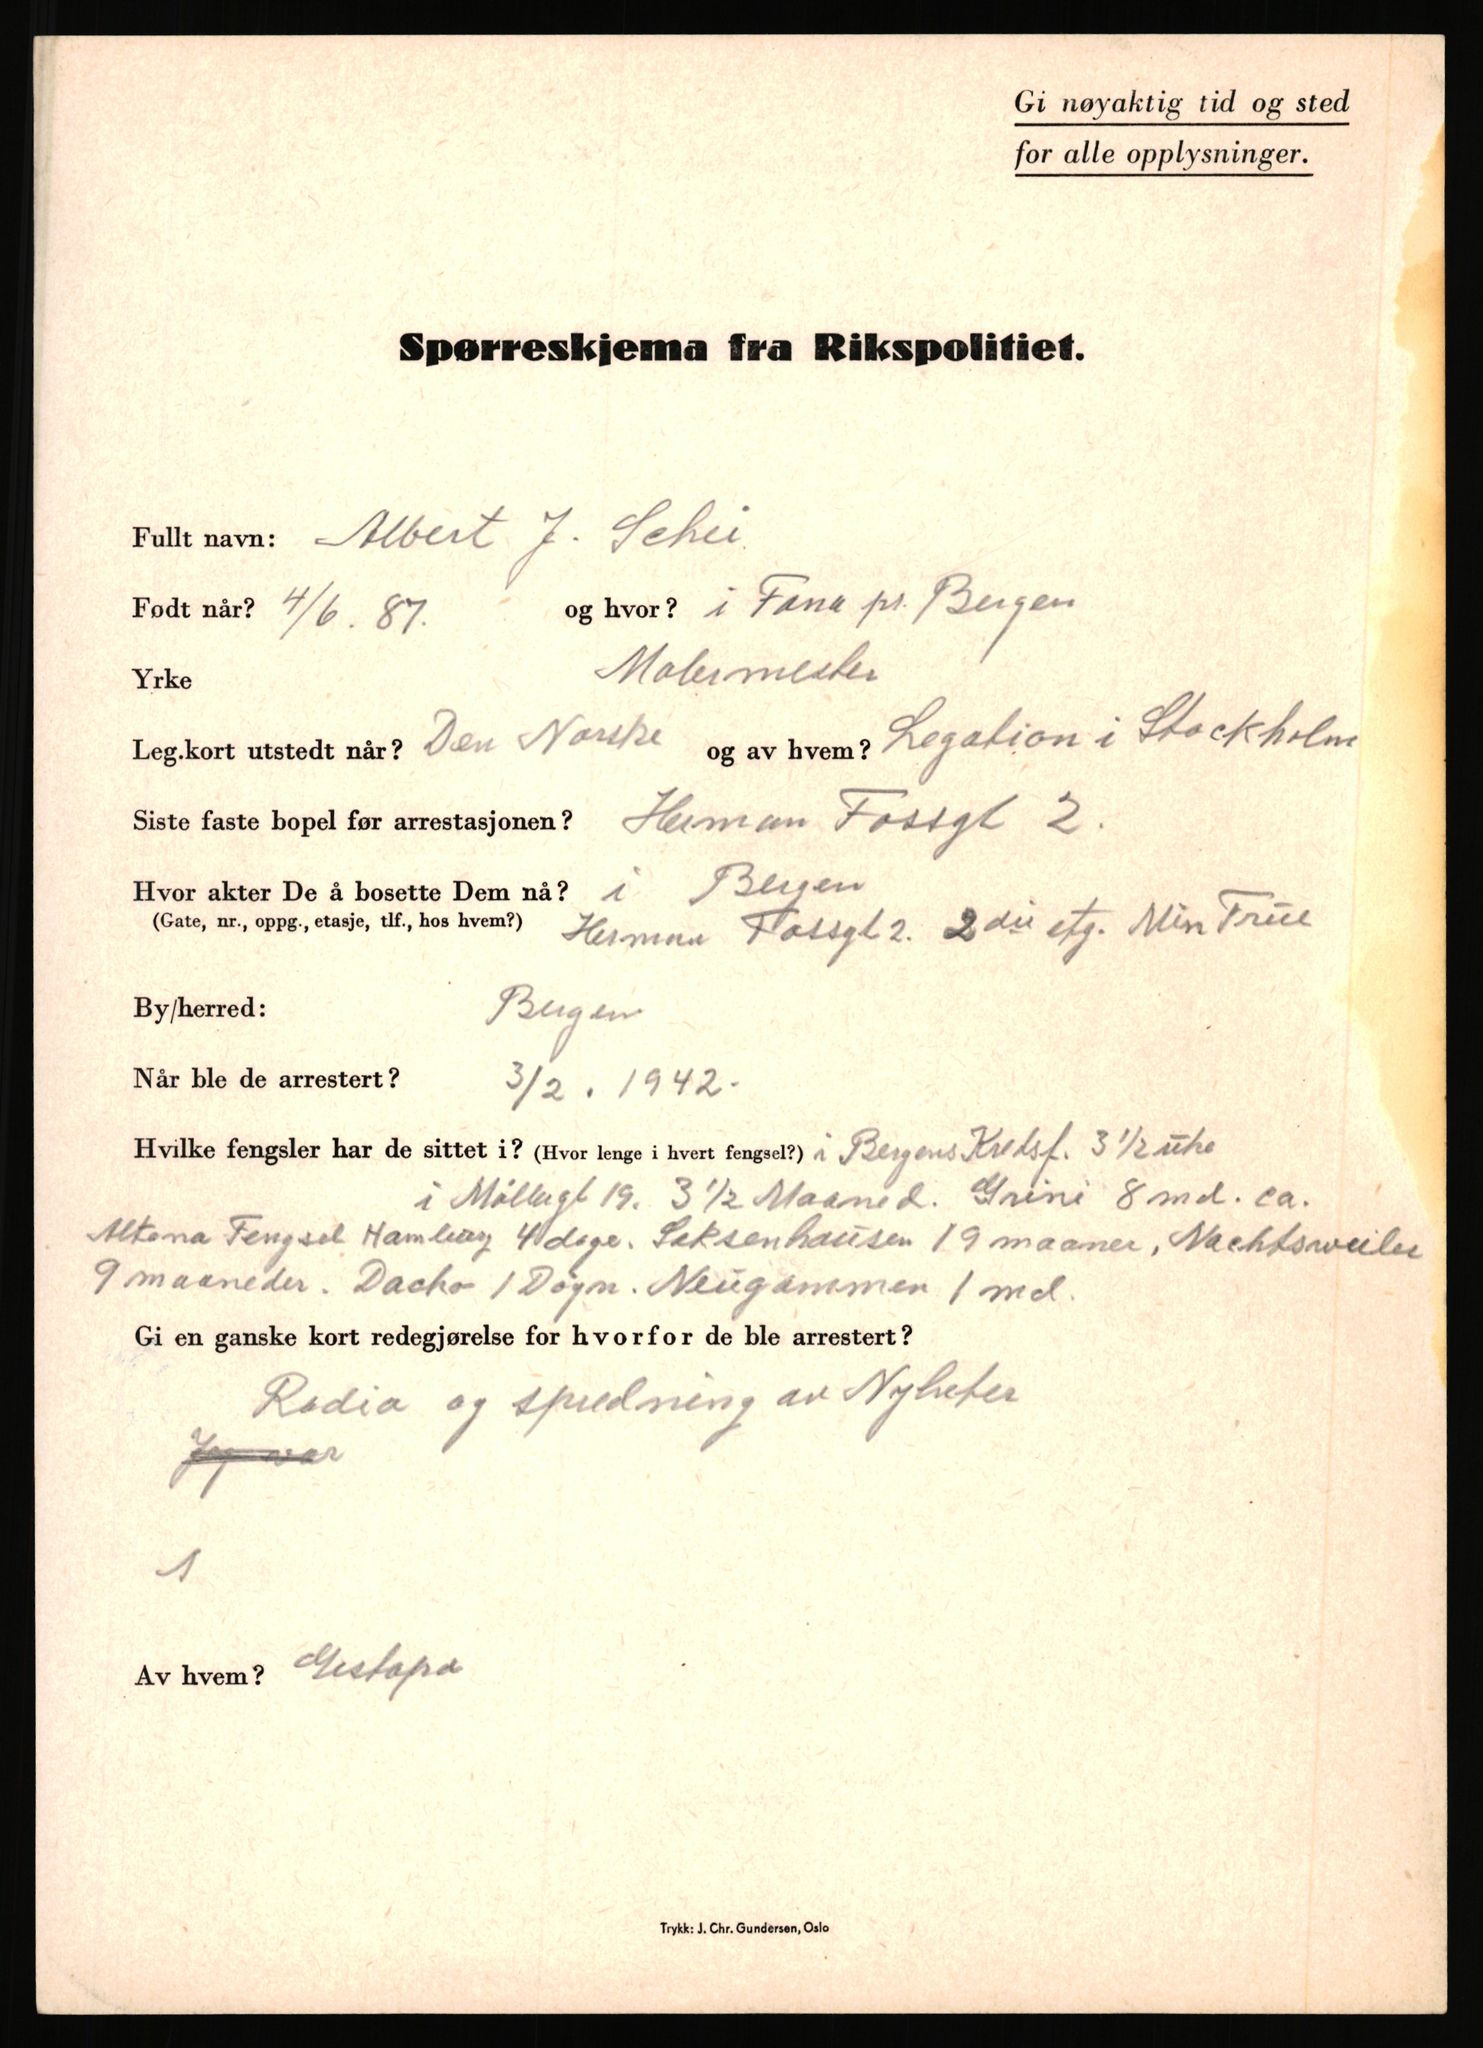 Gi nøyaktig tid og sted
for alle opplysninger.
Spørreskjema fra Rikspolitiet.
Fullt navn: Albert J. Schei
Født når? 4/6. 87. og hvor? i Fana pr. Bergen
Yrke Malermester
Leg.kort utstedt når? Den Norske og av hvem? Legation i Stockholm
Siste faste bopel før arrestasjonen? Herman Fossgt 2.
Hvor akter De å bosette Dem nå? i Bergen
(Gate, nr., oppg., etasje, tlf., hos hvem?) Herman Fossgt 2. 2den etg. Min Frue
By/herred: Bergen
Når ble de arrestert? 3/2. 1942-
Hvilke fengsler har de sittet i? (Hvor lenge i hvert fengsel?) i Bergens Kredsf. 3 1/2 uke
i Møllergt 19. 3 1/2 Maaned. Grini 8 md. ca.
Altona Fengsel Hamburg 4 dage. Saksenhausen 19 maaner, Nachtsweiler
9 maaneder. Dacho 1 Døgn. Neugammen 1 md.
Gi en ganske kort redegjørelse for hvorfor de ble arrestert?
Radio og spredning av Nyheter
Jeg var
Av hvem? Gestapo
Trykk: J. Chr. Gundersen, Oslo